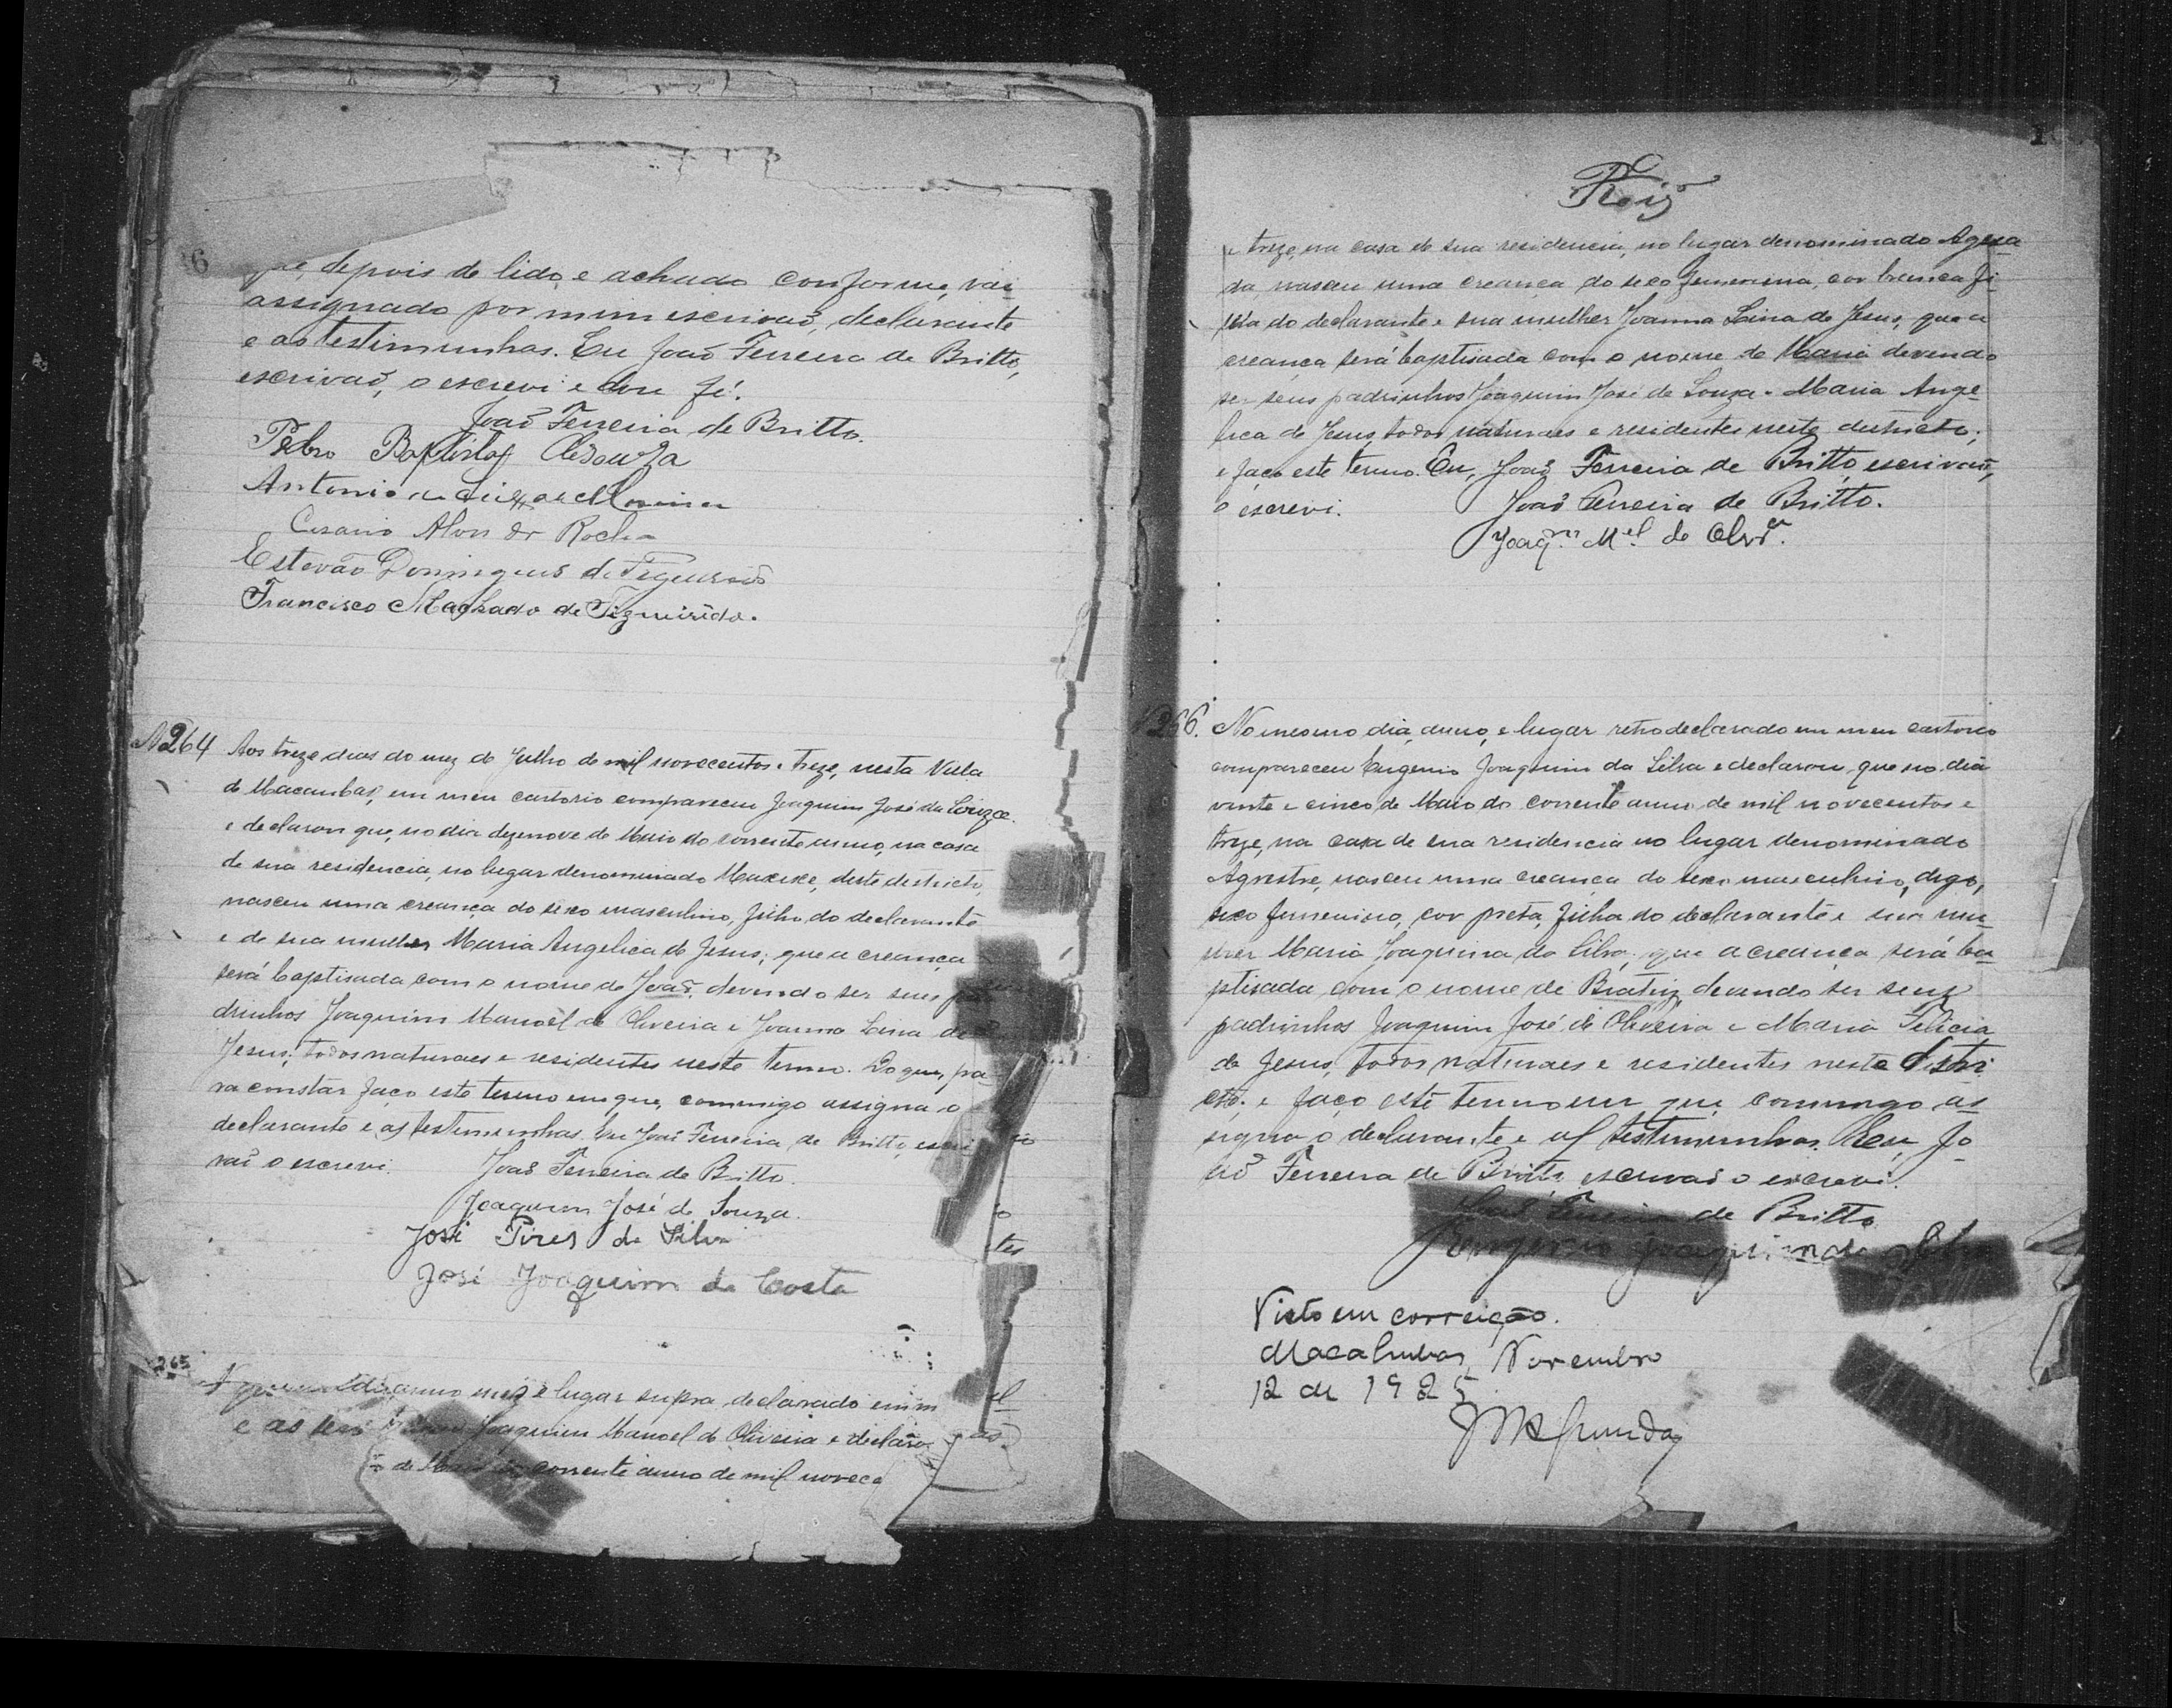 26
que, depois de lido e achado conforme, vai
assignado por mim escrivaõ, declarante
e as testimunhas. Eu João Ferreira de Britto,
escrivaõ, o escrevi e dou fé.
João Ferreira de Britto.
Pedro Baptista de Souza
Antonio de
Cesario Alves da Rocha
Estevão Domingues de Figueiredo
Francisco Machado de Figueirêdo.
N 264 Aos treze dias do mez de Julho de mil novecentos e treze, nesta Villa
de Macaubas, em meu cartorio compareceu Joaquim José de Souza
e declarou que, no dia dezenove de Maio do corrente anno, na casa
de sua residencia, no lugar denominado Maxixe, deste districto,
nasceu uma creança do sexo masculino, filho do declarante
e de sua mulher Maria Angelica de Jesus; que a creança
será baptisada com o nome de João, devendo ser seus pa
drinhos Joaquim Manoel de Oliveira e Joanna Lina de
Jesus; todos naturaes e residentes neste termo. Do que, pa-
ra constar faço este termo em que, commigo assigna o
declarante e as testimunhas. Eu João Ferreira de Britto, escri
vaõ o escrevi.
João Ferreira de Britto.
Joaquim José de Souza.
José Pires da Silva
José Joaquim da Costa
265
anno mez e lugar supra declarado em m
Joaquim Manoel de Oliveira e declaro
de Maio do corrente anno de mil novece
Reis
e treze, na casa de sua residencia, no lugar denominado
da, nasceu uma creança do sexo femenina, cor branca fi-
lha do declarante e sua mulher Joanna Lina de Jesus, que a
creança será baptisada com o nome de Maria devendo
ser seus padrinhos Joaquim José de Souza e Maria Ange-
lica de Jesus, todos naturaes e residentes neste districto;
e faço este termo. Eu, João Ferreira de Britto, escrivaõ,
o escrevi.
João Ferreira de Britto.
Joaqm Mel de Olvra.
N 266. No mesmo dia, anno, e lugar retro declarado em meu cartorio
compareceu Eugenio Joaquim da Silva e declarou que no dia
vinte e cinco de Maio do corrente anno de mil novecentos e
treze, na casa de sua residencia no lugar denominado
Agrestre, nasceu uma creança do sexo masculino, digo,
sexo femenino, cor preta, filha do declarante e sua mu-
lher Maria Joaquina da Silva; que a creança será ba-
ptisada com o nome de Beatriz, devendo ser seus
padrinhos Joaquim José de Oliveira e Maria Felicia
de Jesus, todos naturaes e residentes neste distri
cto; e faço este termo em que commigo as-
signa o declarante e as testimunhas. Eu, Jo-
aõ Ferreira de Britto escrivaõ o escrevi.
João Ferreira de Britto
Joaquim da Silva
Visto em correição.
Macahubas, Novembro
12 de 1925